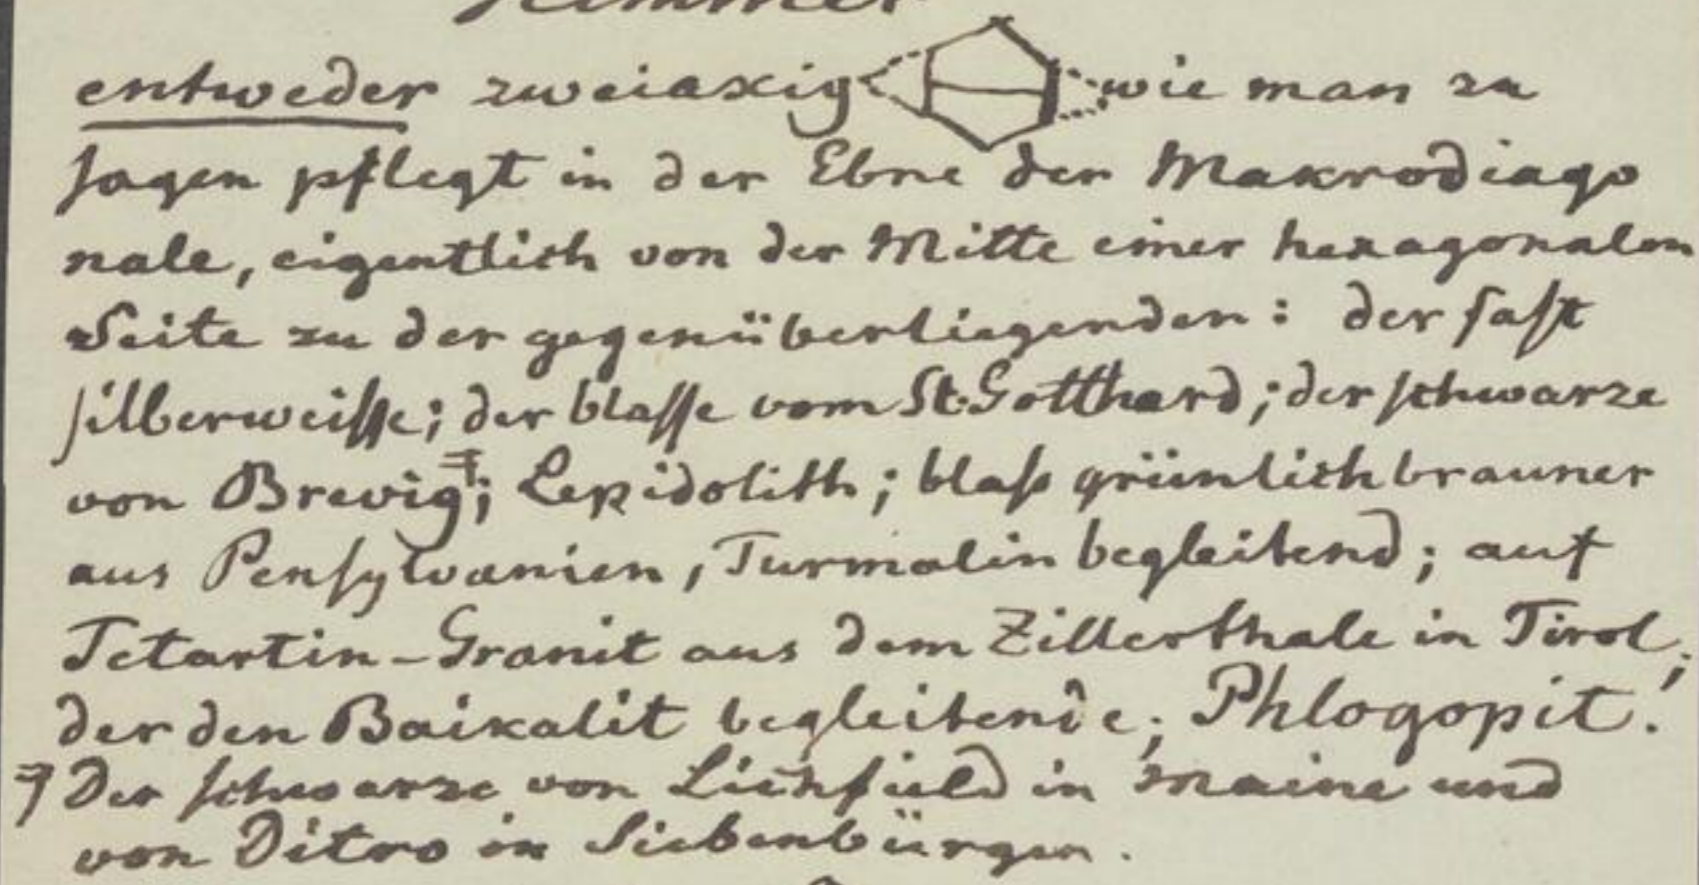 entweder zweiaxig wie man zu
sagen pflegt in der Ebne der Makrodiago
nale, eigentlich von der Mitte einer hexagonalen
Seite zu der gegenüberliegenden: der fast
silberweisse; der blasse vom St. Gotthard; der schwarze
von Brevig ⹋; Lepidolith; blaß grünlichbrauner
aus Pensylvanien, Turmalin begleitend; auf
Tetartin-Granit aus dem Zillerthale in Tirol;
der den Baikalit begleitende; Phlogopit.
Der schwarze von Lichfield in Maine und
von Ditro in Siebenbürgen.